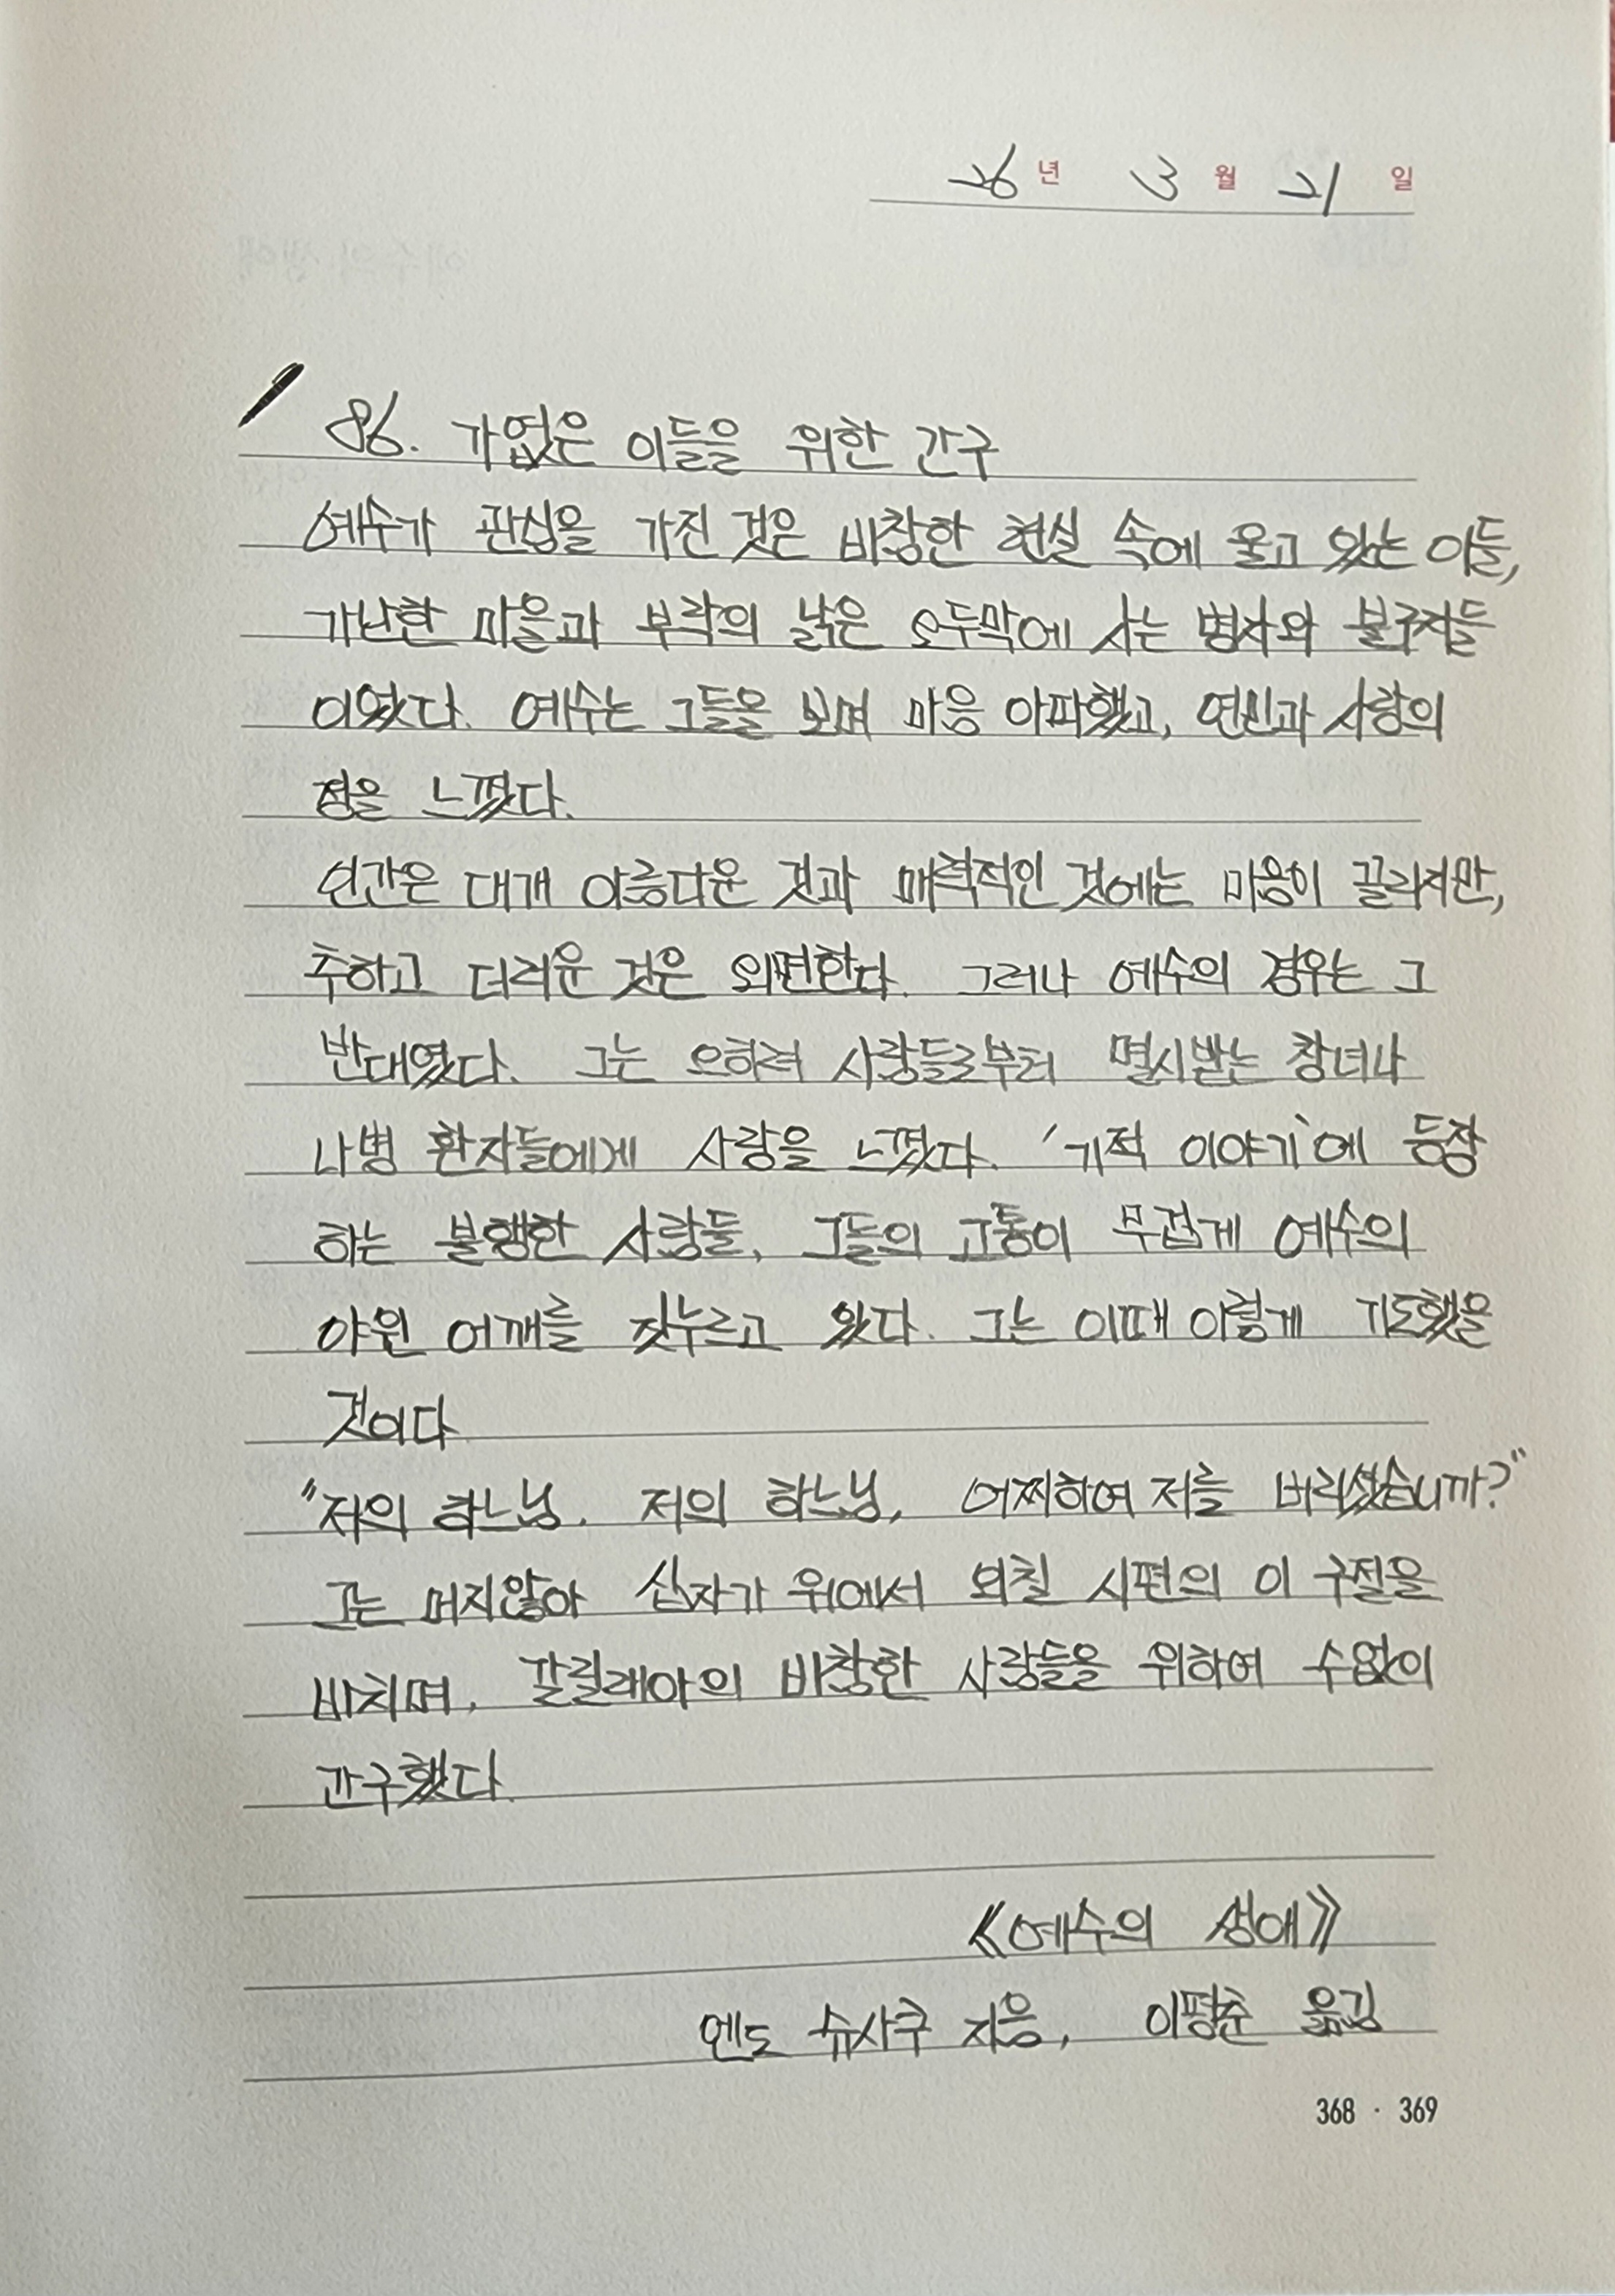 26년 3월 21일
86. 가엾은 이들을 위한 간구
예수가 관심을 가진 것은 비참한 현실 속에 울고 있는 이들,
가난한 마을과 부락의 낡은 오두막에 사는 병자와 불구자들
이었다. 예수는 그들을 보며 마음 아파했고, 연민과 사랑의
정을 느꼈다.
인간은 대개 아름다운 것과 매력적인 것에는 마음이 끌리지만,
추하고 더러운 것은 외면한다. 그러나 예수의 경우는 그
반대였다. 그는 오히려 사람들로부터 멸시받는 창녀나
나병 환자들에게 사랑을 느꼈다. '기적 이야기'에 등장
하는 불행한 사람들, 그들의 고통이 무겁게 예수의
야윈 어깨를 짓누르고 있다. 그는 이때 이렇게 기도했을
것이다
"저의 하느님, 저의 하느님, 어찌하여 저를 버리셨습니까?"
그는 머지않아 십자가 위에서 외칠 시편의 이 구절을
바치며, 갈릴래아의 비참한 사람들을 위하여 수없이
간구했다.
《예수의 생애》
엔도 슈사쿠 지음, 이평춘 옮김
368 · 369